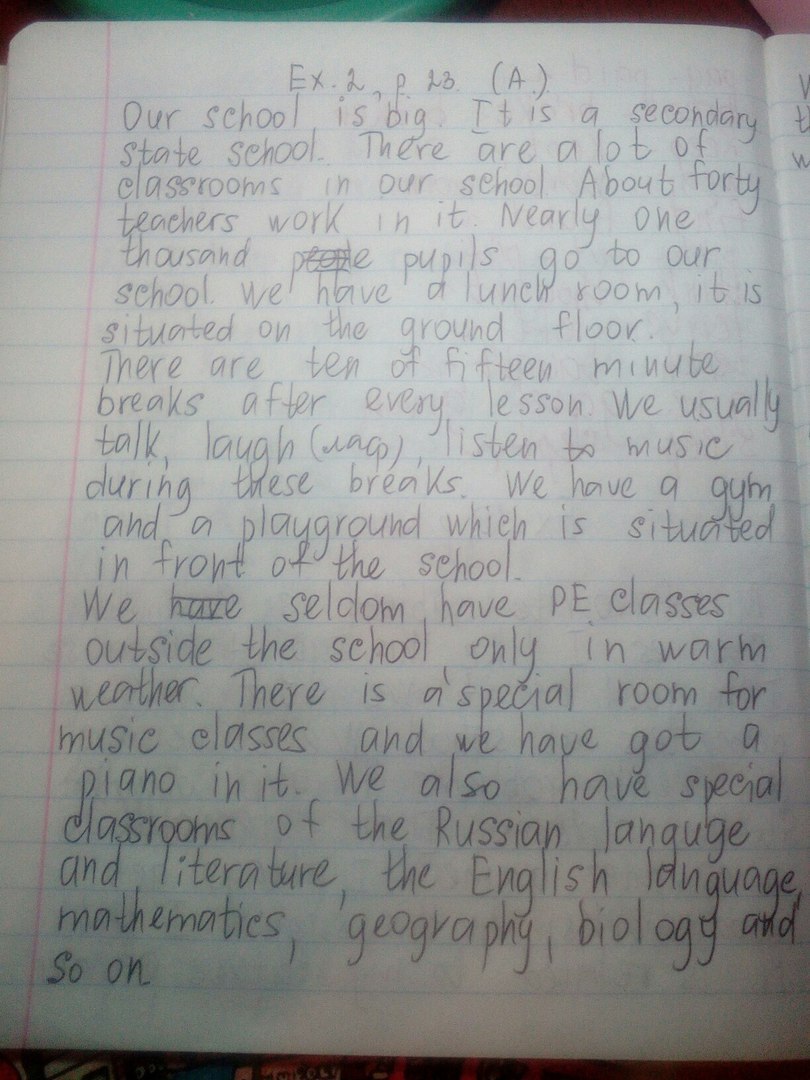 Ex. 2, p. 23. (A.)
Our school is big. It is a secondary
state school. There are a lot of
classrooms in our school. About forty
teachers work in it. Nearly one
thousand people pupils go to our
school. We have a lunch room, it is
situated on the ground floor.
There are ten of fifteen minute
breaks after every lesson. We usually
talk, laugh (лаф), listen to music
during these breaks. We have a gym
and a playground which is situated
in front of the school.
We have seldom have PE classes
outside the school, only in warm
weather. There is a special room for
music classes and we have got a
piano in it. We also have special
classrooms of the Russian languge
and literature, the English language,
mathematics, geography, biology and
so on.